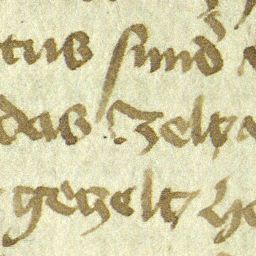 tus sund
das Zelt
gezelt he